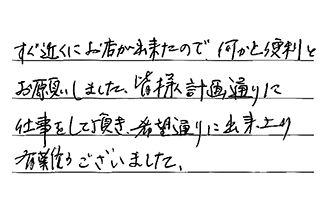 すぐ近くにお店が出来たので、何かと便利と
お願いしました、皆様計画通りに
仕事をして頂き、希望通りに出来上り
有難うございました。